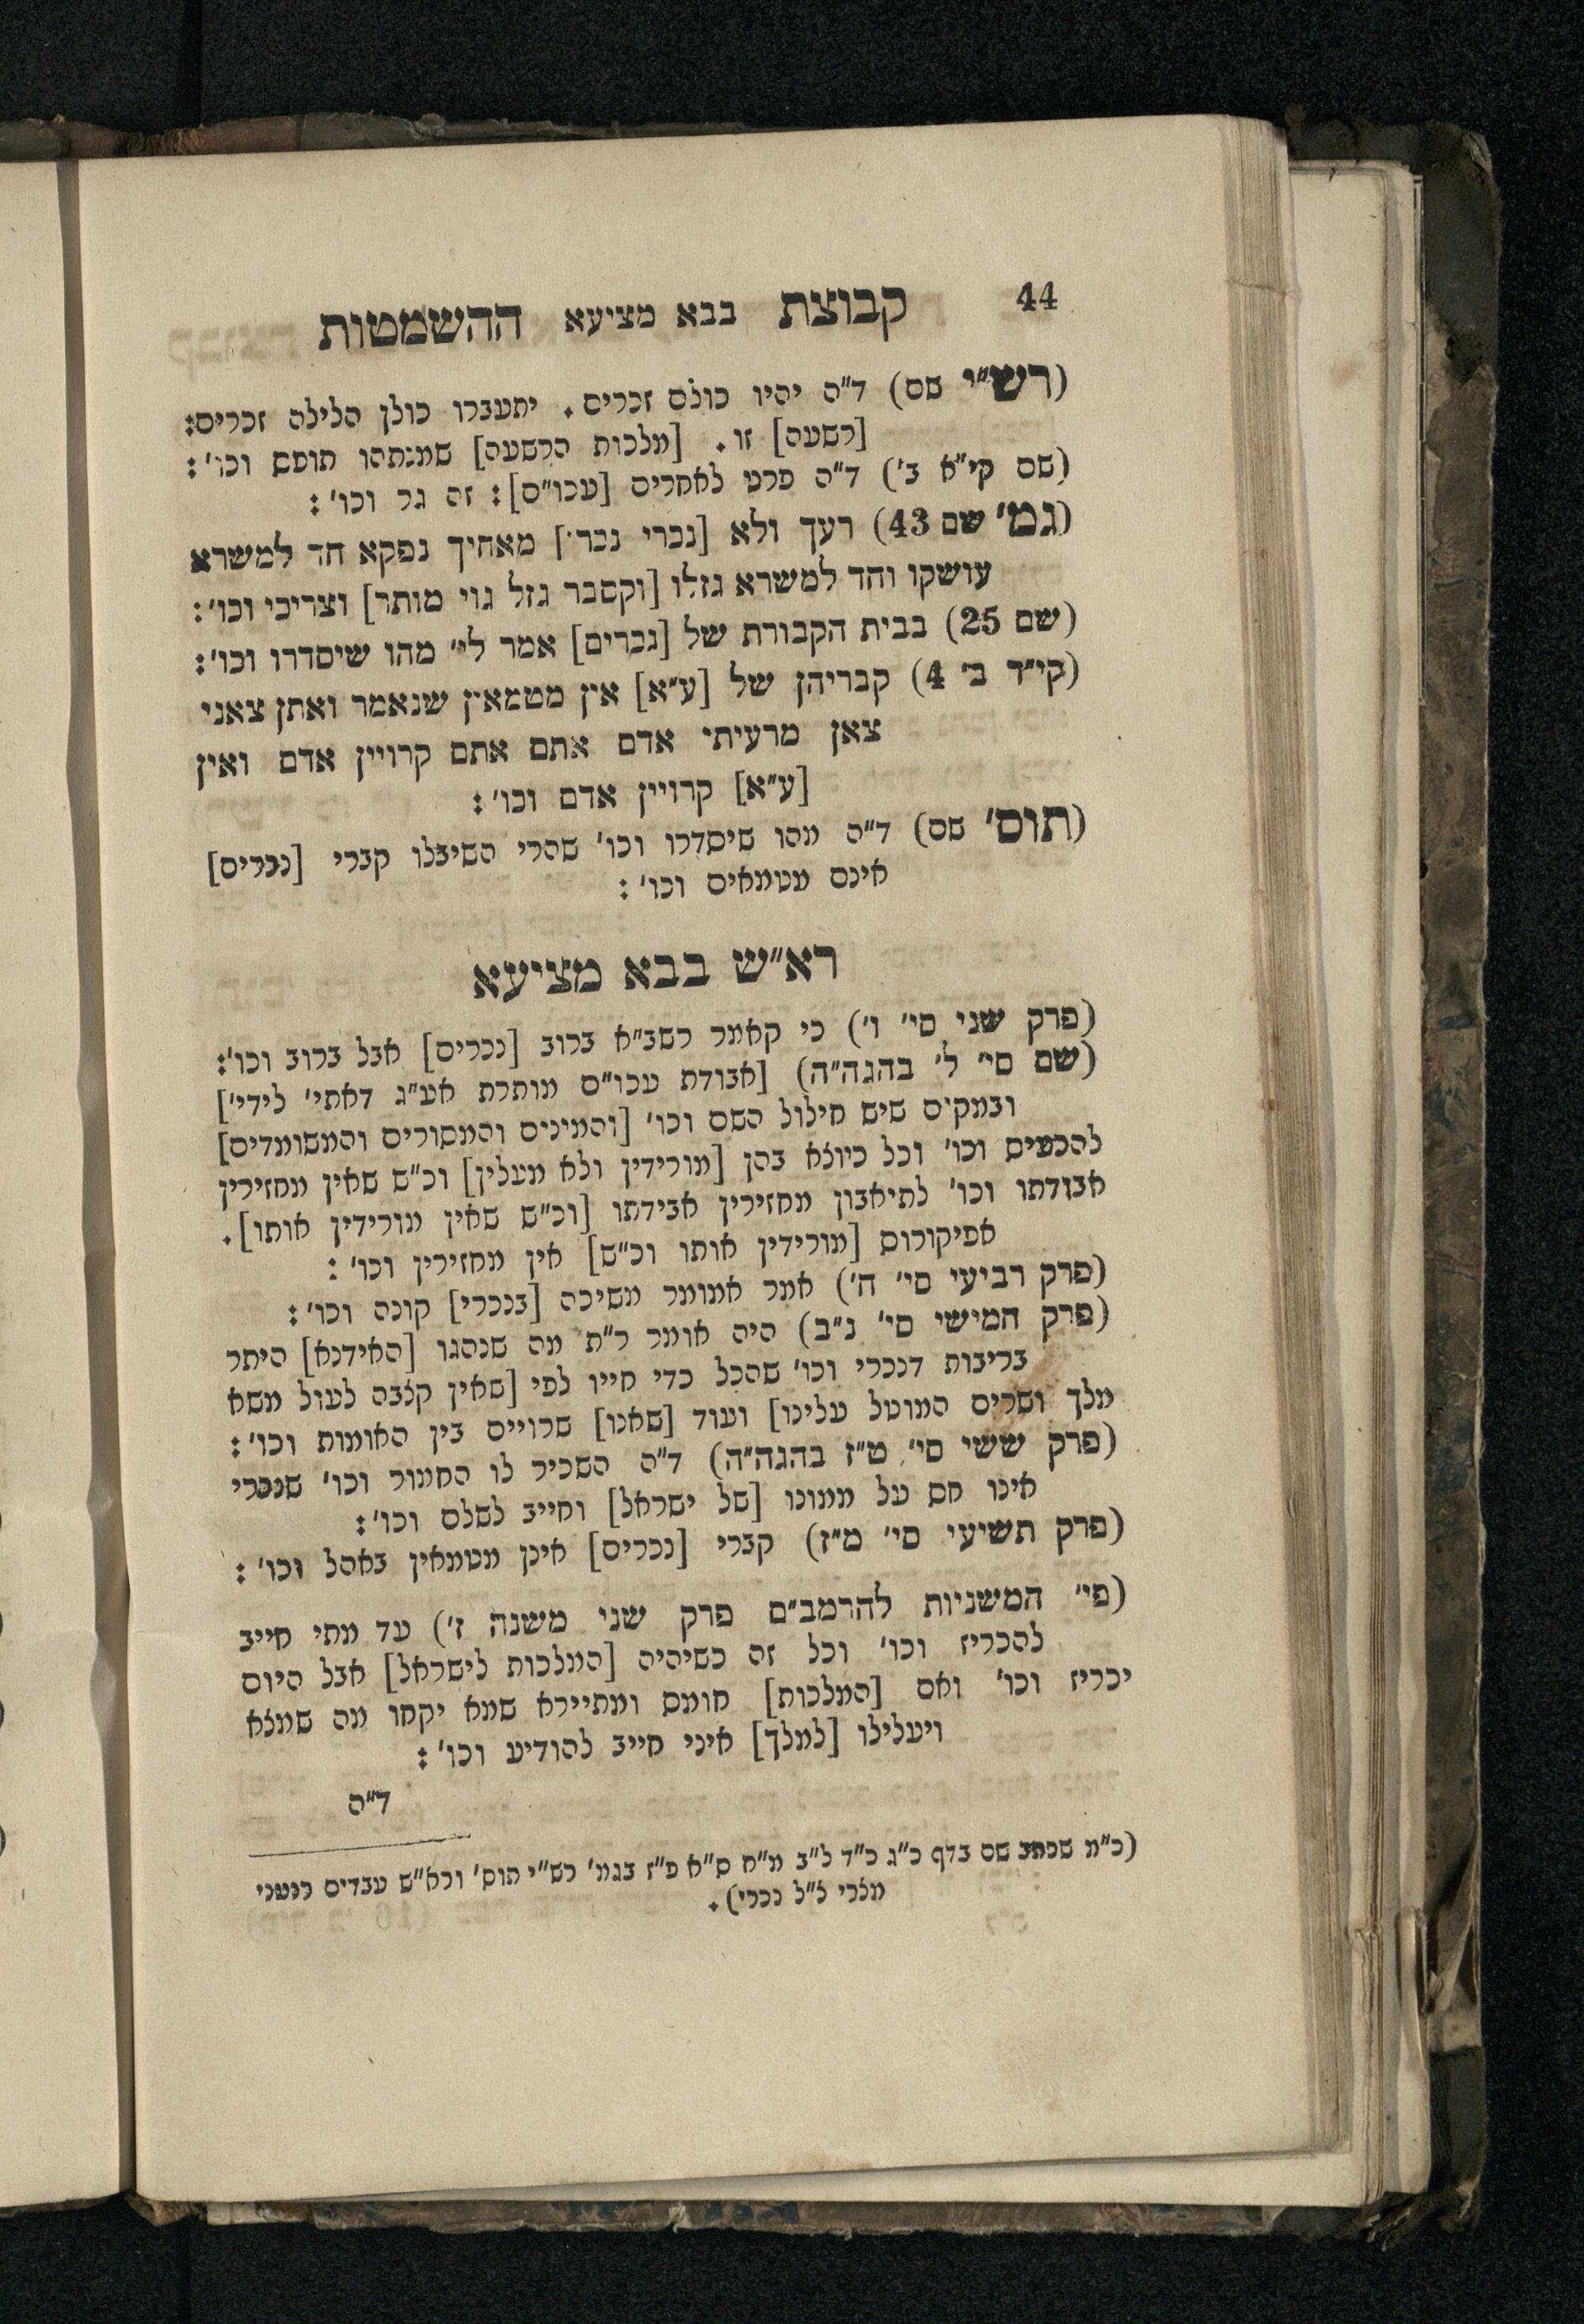 44 קבוצת בבא מציעא ההשמטות
(רש״י שם) ד״ה יהיו כולם זכרים. יתעברו כולן הלילה זכרים:
[רשעה] זו. [מלכות הרשעה] שמנתהו תופש וכו׳:
(שם קי״א ב׳) ד״ה פרט לאחרים [עכו״ם]: זה גר וכו׳:
(גמ׳ שם 43) רעך ולא [נכרי נכרי] מאחיך נפקא חד למשרא
עושקו וחד למשרא גזלו [וקסבר גזל גוי מותר] וצריכי וכו׳:
(שם 25) בבית הקבורת של [נכרים] אמר לי׳ מהו שיסדרו וכו׳:
(קי״ד ב׳ 4) קבריהן של [ע״א] אין מטמאין שנאמר ואתן צאני
צאן מרעיתי אדם אתם אתם קרויין אדם ואין
[ע״א] קרויין אדם וכו׳:
(תוס׳ שם) ד״ה מהו שיסדרו וכו׳ שהרי השיבלו קברי [נכרים]
אינם מטמאים וכו׳:
רא״ש בבא מציעא
(פרק שני סי׳ ו׳) כי קאמר רשב״א ברוב [נכרים] אבל ברוב וכו׳:
(שם סי׳ ל׳ בהגה״ה) [אבודת עכו״ם מותרת אע״ג דאתי׳ לידי׳]
ובמקום שיש חילול השם וכו׳ [והמינים והמסורים והמשומדים]
להכעיס וכו׳ וכל כיוצא בהן [מורידין ולא מעלין] וכ״ש שאין מחזירין
אבודתו וכו׳ לתיאבון מחזירין אבידתו [וכ״ש שאין מורידין אותו].
אפיקורוס [מורידין אותו וכ״ש] אין מחזירין וכו׳:
(פרק רביעי סי׳ ה׳) אמר אמומר משיכה [בנכרי] קונה וכו׳:
(פרק חמישי סי׳ נ״ב) היה אומר ר״ת מה שנהגו [האידנא] היתר
בריבות דנכרי וכו׳ שהכל כדי חייו לפי [שאין קצבה לעול משא
מלך ושרים המוטל עלינו] ועוד [שאנו] שרויים בין האומות וכו׳:
(פרק ששי סי׳ ט״ז בהגה״ה) ד״ה השכיר לו החמור וכו׳ שנכרי
אינו חס על ממונו [של ישראל] וחייב לשלם וכו׳:
(פרק תשיעי סי׳ מ״ז) קברי [נכרים] אינן מטמאין באהל וכו׳:
(פי׳ המשניות להרמב״ם פרק שני משנה ז׳) עד מתי חייב
להכריז וכו׳ וכל זה כשיהיה [המלכות לישראל] אבל היום
יכריז וכו׳ ואם [המלכות] חומס ומתיירא שמא יקחו מה שמצא
ויעלילו [למלך] איני חייב להודיע וכו׳:
ד״ה
(כ״מ שכתב שם בדף כ״ג כ״ד ל״ב מ״ח ס״א פ״ז בגמ׳ רש״י תוס׳ ורא״ש עבדים
מצרי צ״ל נכרי).